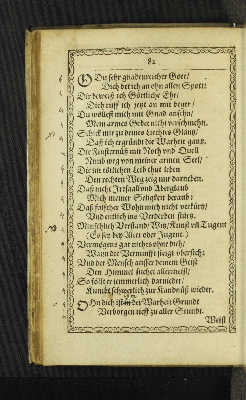 82
O Du sehr gnadenreicher Gott/
Dich bet ich an ohn allen Spott:
Dir beweiß ich Göttliche Ehr/
Dich ruff ich jetzt an mit beger/
Du wollest mich mit Gnad ansehn/
Mein armes Gebet nicht verschmehn.
Schick mir zu deines Liechtes Glantz/
Daß ich ergründ die Warheit gantz.
Die Finsternüß mit Noth und Quell
Nimb weg von meiner armen Seel/
Die im tödlichen Leib thut leben
Den rechten Weg zeig mir darneben.
Daß nicht Irrsal und Aberglaub
Mich meiner Seligkeit beraub:
Daß falscher Wohn mich nicht verführ/
Und endlich ins Verderben stürtz.
Menschlich Verstand/ Witz/ Kunst uñ Tugent
(Es sey bey Alter oder Jugent)
Vermögens gar nichts ohne dich/
Wann die Vernunfft siegt übersich:
Und der Mensch ausser deinem Geist
Den Himmel suchet allermeist/
So fällt er jemmerlich darnieder/
Kombt schwerlich zur Kandnüß wieder.
Ohn dich ist der Warheit Grundt
Verborgen tieff zu aller Stundt.
Weist